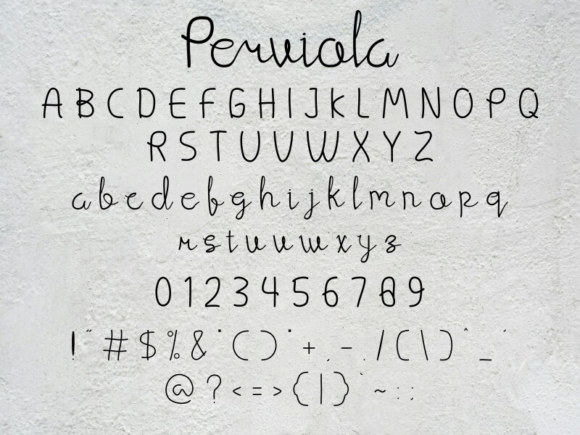 Perviola
A B C D E F G H I J K L M N O P Q
R S T U U V W X Y Z
a b c d e f g h i j k l m n o p q
r s t u v w x y z
0 1 2 3 4 5 6 7 8 9
! " # $ % & ' ( ) * + , - . / ( \ ) ^ _ `
@ ? < = > { | } ` ~ : ;